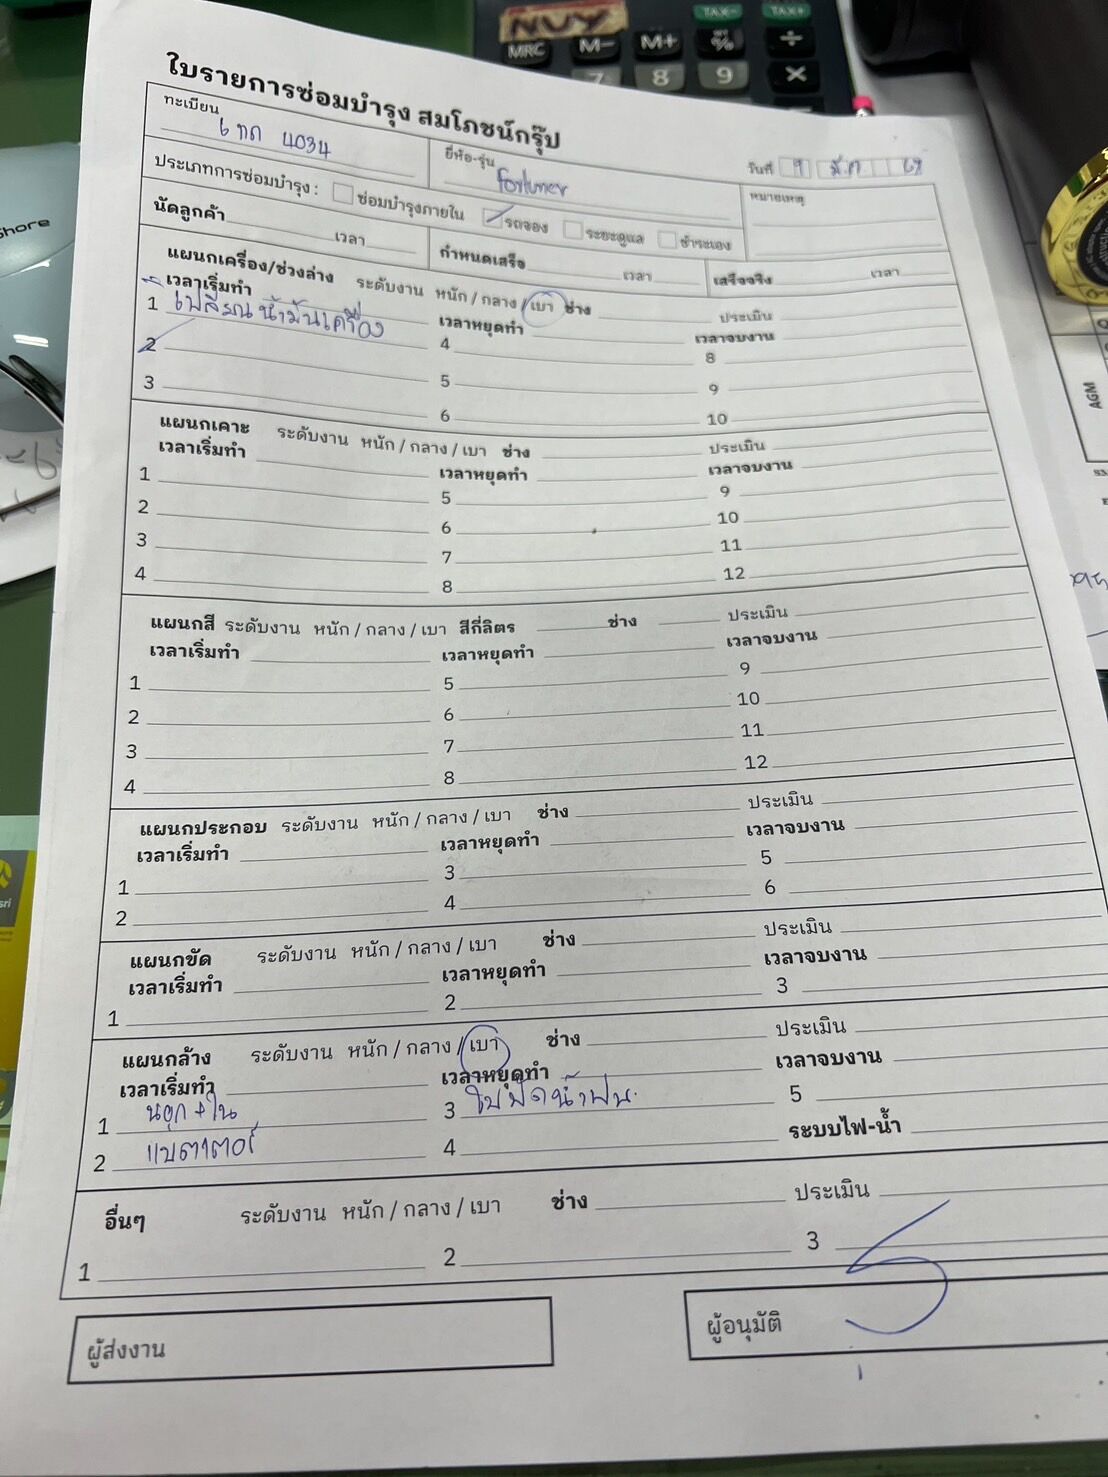 NUY
TAX- TAX+
MRC M- M+ ÷
7 8 9 ×
ใบรายการซ่อมบำรุง สมโภชน์กรุ๊ป
ทะเบียน 6 ทด 4034 ยี่ห้อ-รุ่น Fortuner วันที่ 9 มี.ค. 68
ประเภทการซ่อมบำรุง : ซ่อมบำรุงภายใน รถจอง ระยะดูแล ชำระเอง หมายเหตุ
นัดลูกค้า เวลา กำหนดเสร็จ เวลา เสร็จจริง เวลา
แผนกเครื่อง/ช่วงล่าง ระดับงาน หนัก / กลาง / เบา ช่าง ประเมิน
เวลาเริ่มทำ เวลาหยุดทำ เวลาจบงาน
1 เปลี่ยนน้ำมันเครื่อง 4 8
2 5 9
3 6 10
แผนกเคาะ ระดับงาน หนัก / กลาง / เบา ช่าง ประเมิน
เวลาเริ่มทำ เวลาหยุดทำ เวลาจบงาน
1 5 9
2 6 10
3 7 11
4 8 12
แผนกสี ระดับงาน หนัก / กลาง / เบา สีกี่ลิตร ช่าง ประเมิน
เวลาเริ่มทำ เวลาหยุดทำ เวลาจบงาน
1 5 9
2 6 10
3 7 11
4 8 12
แผนกประกอบ ระดับงาน หนัก / กลาง / เบา ช่าง ประเมิน
เวลาเริ่มทำ เวลาหยุดทำ เวลาจบงาน
1 3 5
2 4 6
แผนกขัด ระดับงาน หนัก / กลาง / เบา ช่าง ประเมิน
เวลาเริ่มทำ เวลาหยุดทำ เวลาจบงาน
1 2 3
แผนกล้าง ระดับงาน หนัก / กลาง / เบา ช่าง ประเมิน
เวลาเริ่มทำ เวลาหยุดทำ เวลาจบงาน
1 นอก + ใน 3 ใบปัดน้ำฝน 5
2 แบตเตอร์ 4 ระบบไฟ-น้ำ
อื่นๆ ระดับงาน หนัก / กลาง / เบา ช่าง ประเมิน
1 2 3
ผู้ส่งงาน ผู้อนุมัติ
AGM